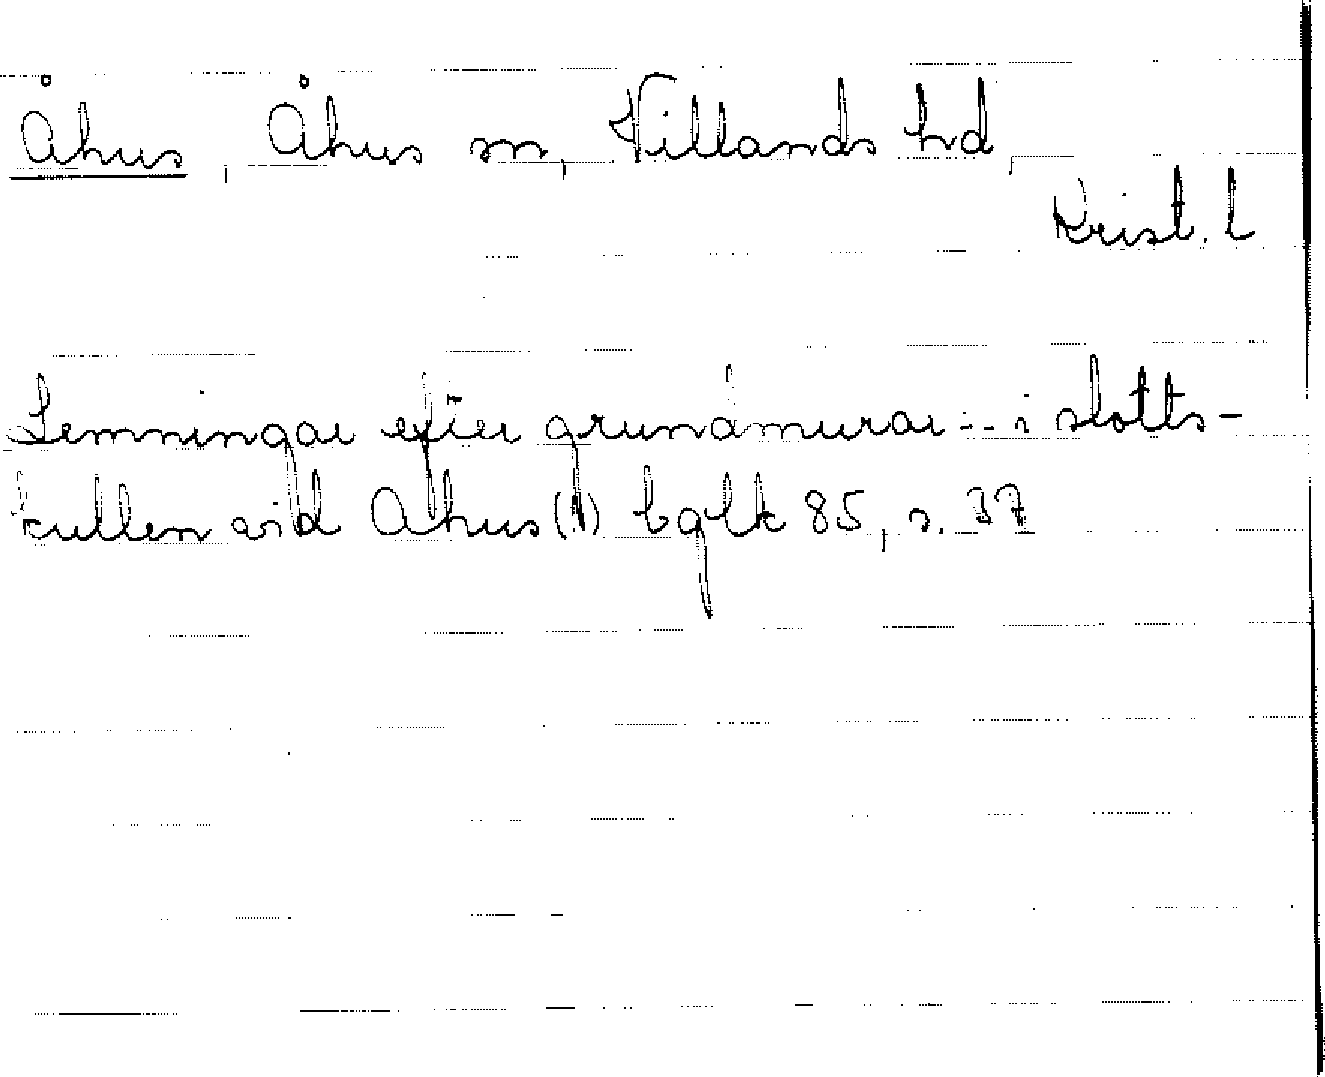 Åhus, Åhus sn, Villands hd,
Krist. l
Lemningar efter grundmurar -- i slotts-
kullen vid Ahus (!) bglk 85, s. 37